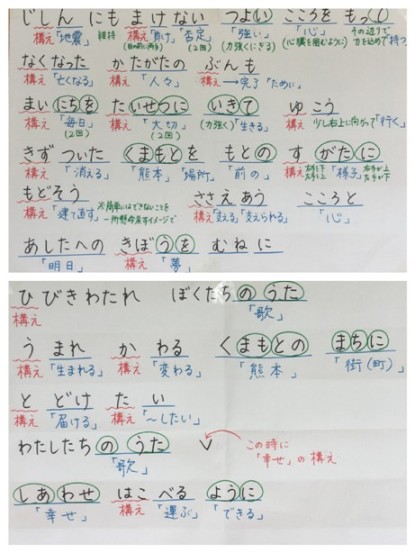 じしん にも まけない つよい こころを もって
構え「地震」 維持 構え「負け」「否定」 「強い」 「心」 その辺りで
(2回) (力強くにぎる) (心臓を掴むように) 力を込めて持つ
なくなった かたがたの ぶんも
構え「亡くなる」 構え「人々」 構え→完了「ために」
まいにちを たいせつに いきて ゆこう
構え「毎日」 構え「大切」 (力強く)「生きる」 構え 少し右上に向かって「行く」
(2回) (2回)
きずついた くまもとを もとの すがたに
構え「消える」 「熊本」「場所」 「前の」 構え 「様子」
もどそう ささえあう こころと
構え「建て直す」 構え「支える」「支えられる」 「心」
一所懸命なイメージで
あしたへの きぼうを むねに
「明日」 「夢」
ひびきわたれ ぼくたちのうた
構え 「歌」
うまれ かわる くまもとの まちに
構え「生まれる」 構え「変わる」 「熊本」 「街(町)」
とどけ たい
構え「届ける」 構え「〜したい」
わたしたちのうた ∨ この時に
「歌」 「幸せ」の構え
しあわせ はこべる ように
「幸せ」 構え「運ぶ」 「できる」